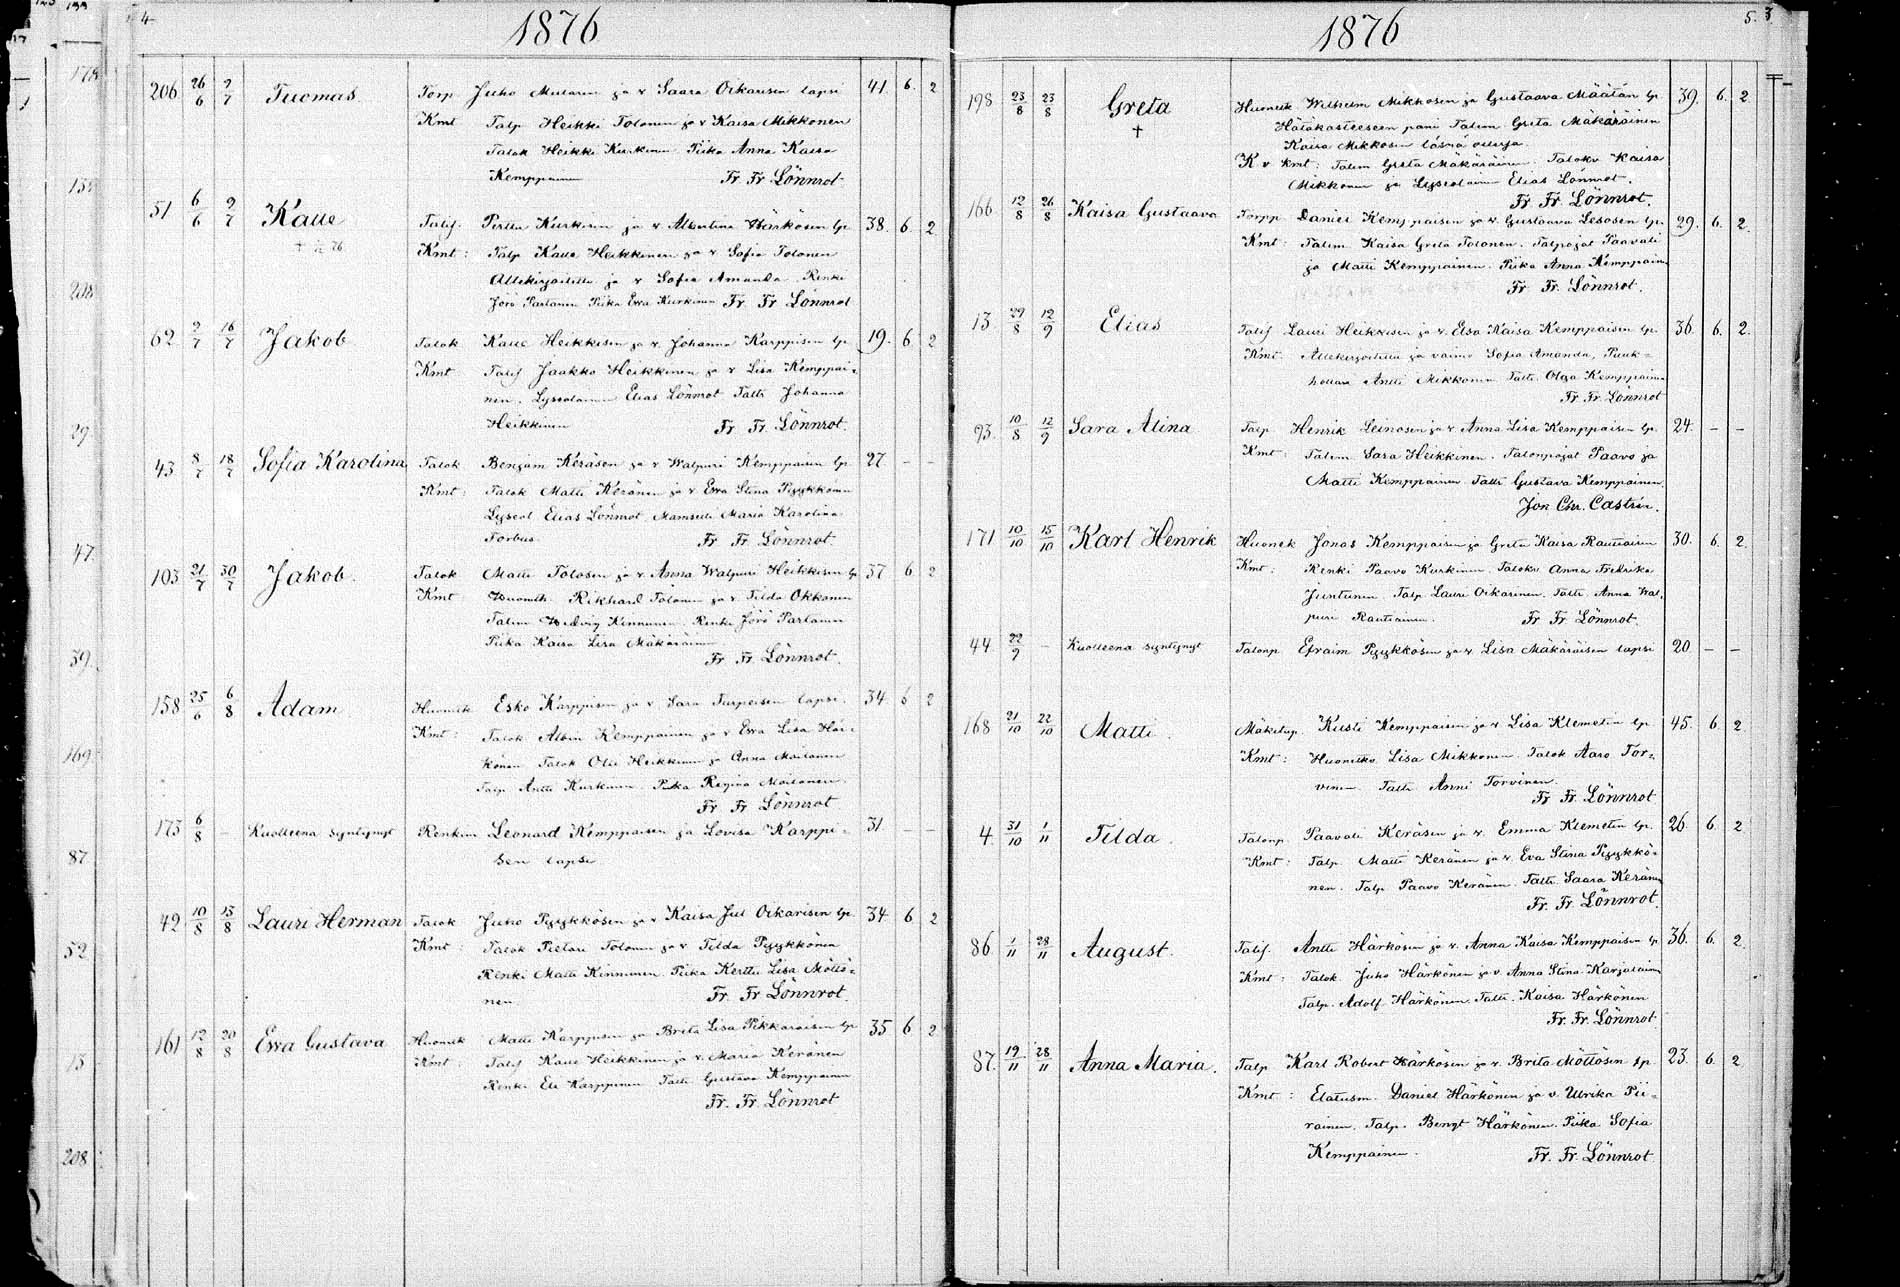 4
1876
206 26/6 2/7 Tuomas. Torp Juho Mularin ja v Saara Oikarisen lapsi 41. 6. 2
Kmt Talp Heikki Tolonen ja v Kaisa Mikkonen
Talok Heikki Kurkinen Piika Anna Kaisa
Kemppainen Fr Fr Lönnrot
51 6/6 2/7 Kalle Talij. Pertta Kurkisen ja v Albertina Härkösen lp. 38. 6. 2
Kmt: Talp Kalle Heikkinen ja v Sofia Tolonen
Allekirjoitettu ja v Sofia Amanda. Renki
Jörö Partanen Piika Ewa Kurkinen Fr Fr Lönnrot
62 2/7 16/7 Jakob Talok Kalle Heikkisen ja v. Johanna Karppisen lp. 19. 6 2
Kmt Talij Jaakko Heikkinen ja v Lisa Kemppai-
nen. Lyseolainen Elias Lönnrot Tattı Johanna
Heikkinen Fr Fr. Lönnrot.
43 8/7 18/7 Sofia Karolina Talok Benjam Keräsen ja v Walpuri Kemppaisen lp 27 - -
Kmt: Talok Matti Keränen ja v Ewa Stina Pyykkönen
Lyseol Elias Lönnrot Mamselli Maria Karolina
Forbus. Fr Fr Lönnrot.
103 21/7 30/7 Jakob. Talok Matti Tolosen ja v. Anna Walpuri Heikkisen lp 37 6 2
Kmt Huonek. Rikhard Tolonen ja v Tilda Okkonen
Talim Hedvig Kinnunen. Renki Jörö Partanen
Piika Kaisa Lisa Mäkäräinen
Fr Fr. Lönnrot.
158 25/6 6/8 Adam Huonek Esko Karppisen ja v Sara Turpeisen lapsi. 34 6 2
Kmt: Talok Albin Kemppainen ja v Ewa Lisa Här-
könen Talok Olli Heikkinen ja Anna Moilanen
Talp Antti Kurkinen Piika Regina Moilanen.
Fr Fr Lönnrot
173 6/8 - Kuolleena syntynyt Renkim Leonard Kemppaisen ja Lovisa Karppi- 31 - -
sen lapsi
42 10/8 13/8 Lauri Herman Talok Juho Pyykkösen ja v Kaisa Jul Oikarisen lp. 34 6 2
Kmt: Talok Pietari Tolonen ja v. Tilda Pyykkönen
Renki Matti Kinnunen. Piika Kerttu Lisa Möttö-
nen Fr. Fr Lönnrot.
161 12/8 20/8 Ewa Gustava Huonek Matti Karppisen ja Brita Lisa Pikkaraisen lp 35 6 2
Kmt: Talij Kalle Heikkinen ja v. Maria Keränen
Renki Eli Karppinen Tattı Gustava Kemppainen
Fr. Fr. Lönnrot
5.
1876
198 23/8 23/8 Greta † Huonek Wilhelm Mikkosen ja Gustaava Määtän lp 39. 6. 2.
Hätäkasteeseen pani Talim Greta Mäkäräinen
Kaisa Mikkosen läsnä ollessa.
K v Kmt: Talim Greta Mäkäräinen. Talokv Kaisa
Mikkonen ja Lyseolainen Elias Lönnrot.
Fr Fr Lönnrot.
166 12/8 26/8 Kaisa Gustaava Torpp Daniel Kemppaisen ja v. Gustaava Lesosen lp. 29. 6. 2.
Kmt: Talim Kaisa Greta Tolonen. Talpojat Paavali
ja Matti Kemppainen. Piika Anna Kemppainen
Fr Fr. Lönnrot.
13. 29/8 12/9 Elias Talij Lauri Heikkisen ja v. Elsa Kaisa Kemppaisen lp. 36. 6. 2.
Kmt Allekirjoitettu ja vaimo Sofia Amanda, Puuk-
hollari Antti Mikkonen Tattı Olga Kemppainen
Fr Fr Lönnrot
93. 10/8 12/9 Sara Alina Talp Henrik Leinosen ja v Anna Lisa Kemppaisen lp. 24. - -
Kmt: Talim Sara Heikkinen. Talonpojat Paavo ja
Matti Kemppainen Tattı Gustava Kemppainen.
Jon Chr. Castrén.
171 10/10 15/10 Karl Henrik Huonek Jonas Kemppaisen ja Greta Kaisa Rautiaisen 30. 6. 2.
Kmt: Renki Paavo Kurkinen. Talokv Anna Fredrika
Juntunen Talp Lauri Oikarinen. Tattı. Anna Wal-
puri Rautiainen. Fr Fr Lönnrot.
44. 22/9 - Kuolleena syntynyt Talonp Efraim Pyykkösen ja v. Lisa Mäkäräisen lapsi 20 - -
168 21/10 22/10 Matti. Mäkitup. Kusti Kemppaisen ja v Lisa Klemetin lp. 45. 6. 2
Kmt: Huonekv Lisa Mikkonen. Talok Aaro Tor-
vinen Tattı Anni Torvinen.
Fr Fr. Lönnrot
4. 31/10 1/11 Tilda. Talonp Paavali Keräsen ja v. Emma Klemetin lp. 26. 6. 2
Kmt: Talp Matti Keränen ja v. Eva Stina Pyykkö-
nen. Talp Paavo Keränen. Tattı Saara Keränen
Fr. Fr Lönnrot.
86. 1/11 28/11 August. Talij. Antti Härkösen ja v. Anna Kaisa Kemppaisen lp 36. 6. 2.
Kmt: Talok Juho Härkönen ja v Anna Stina Karjalainen
Talp. Adolf Härkönen Tattı. Kaisa Härkönen
Fr. Fr. Lönnrot.
87. 19/11 28/11 Anna Maria. Talp Karl Robert Härkösen ja v. Brita Möttösen lp. 23. 6. 2
Kmt: Elatusm. Daniel Härkönen ja v. Ulrika Pii-
rainen. Talp. Bengt Härkönen. Piika Sofia
Kemppainen. Fr. Fr. Lönnrot.